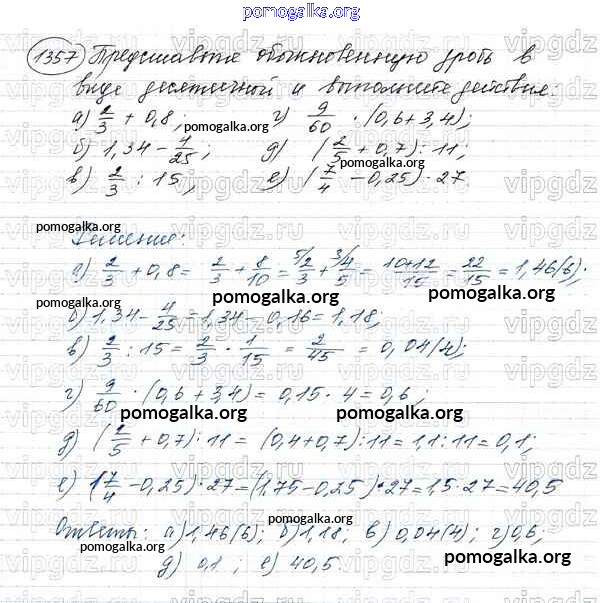 pomogalka.org
1357 Представьте обыкновенную дробь в
виде десятичной и выполните действия:
а) 2/3 + 0,8; г) 9/60 · (0,6 + 3,4);
pomogalka.org
б) 1,34 − 4/25; д) (2/5 + 0,7) : 11;
в) 2/3 : 15; е) (7/4 − 0,25) · 27
pomogalka.org pomogalka.org
Решение:
а) 2/3 + 0,8 = 2/3 + 8/10 = 5/ 2/3 + 3/ 4/5 = 10+12/15 = 22/15 = 1,46(6);
pomogalka.org pomogalka.org
б) 1,34 − 4/25 = 1,34 − 0,16 = 1,18;
в) 2/3 : 15 = 2/3 · 1/15 = 2/45 = 0,04(4);
pomogalka.org
г) 9/60 · (0,6 + 3,4) = 0,15 · 4 = 0,6;
pomogalka.org pomogalka.org
д) (2/5 + 0,7) : 11 = (0,4 + 0,7) : 11 = 1,1 : 11 = 0,1;
pomogalka.org
е) (7/4 − 0,25) · 27 = (1,75 − 0,25) · 27 = 1,5 · 27 = 40,5
pomogalka.org
Ответы: а) 1,46(6); б) 1,18; в) 0,04(4); г) 0,6;
д) 0,1; е) 40,5
pomogalka.org pomogalka.org